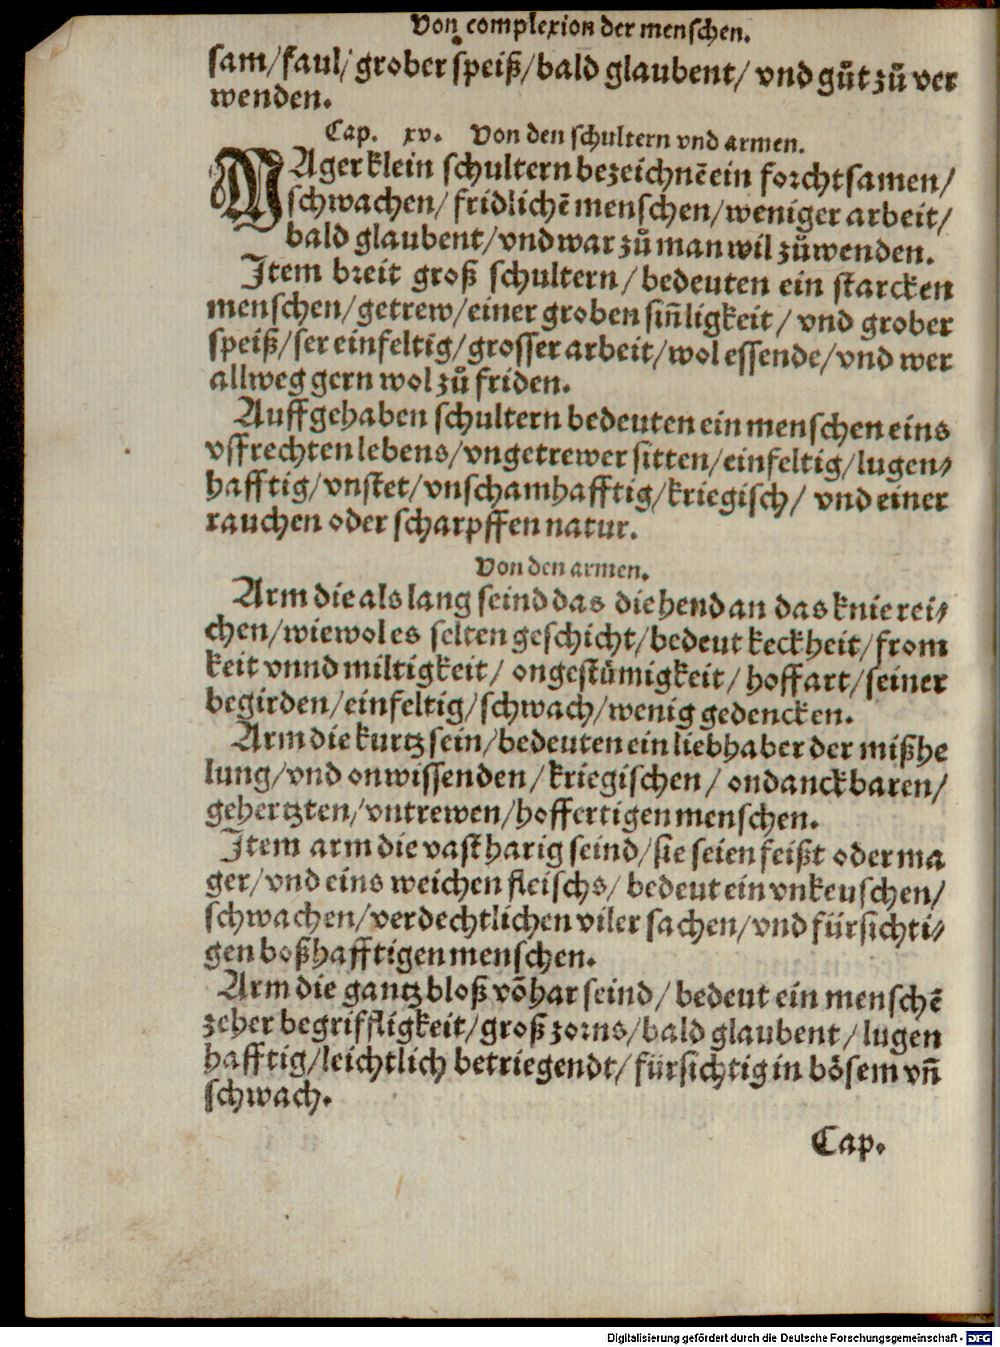 Von complexion der menschen.
sam/faul/grober speiß/bald glaubent/ vnd gůt zů ver
wenden.
Cap. xv. Von den schultern vnd armen.
MAger klein schultern bezeichnē ein forchtsamen/
schwachen/ fridlichē menschen/weniger arbeit/
bald glaubent/vnd war zů man wil zůwenden.
Item breit groß schultern/bedeuten ein starcken
menschen/getrew/einer groben siñligkeit/ vnd grober
speiß/ser einfeltig/grosser arbeit/wol essende/vnd wer
allweg gern wol zů friden.
Auffgehaben schultern bedeuten ein menschen eins
vffrechten lebens/vngetrewer sitten/einfeltig/lugen⸗
hafftig/vnstet/vnschamhafftig/kriegisch/ vnd einer
rauchen oder scharpffen natur.
Von den armen.
Arm die als lang seind das die hend an das knie rei⸗
chen/wiewol es selten geschicht/bedeut keckheit/from
keit vnnd miltigkeit/ ongestümigkeit/hoffart/seiner
begirden/einfeltig/schwach/wenig gedencken.
Arm die kurtz sein/bedeuten ein liebhaber der mißhe
lung/vnd onwissenden/kriegischen/ ondanckbaren/
gehertzten/vntrewen/hoffertigen menschen.
Item arm die vast harig seind/sie seien feißt oder ma
ger/vnd eins weichen fleischs/ bedeut ein vnkeuschen/
schwachen/verdechtlichen viler sachen/vnd fürsichti⸗
gen boßhafftigen menschen.
Arm die gantz bloß vō har seind/bedeut ein menschē
zeher begriffligkeit/groß zorns/bald glaubent/lugen
hafftig/leichtlich betriegendt/fürsichtig in bösem vñ
schwach.
Cap.
Digitalisierung gefördert durch die Deutsche Forschungsgemeinschaft - DFG